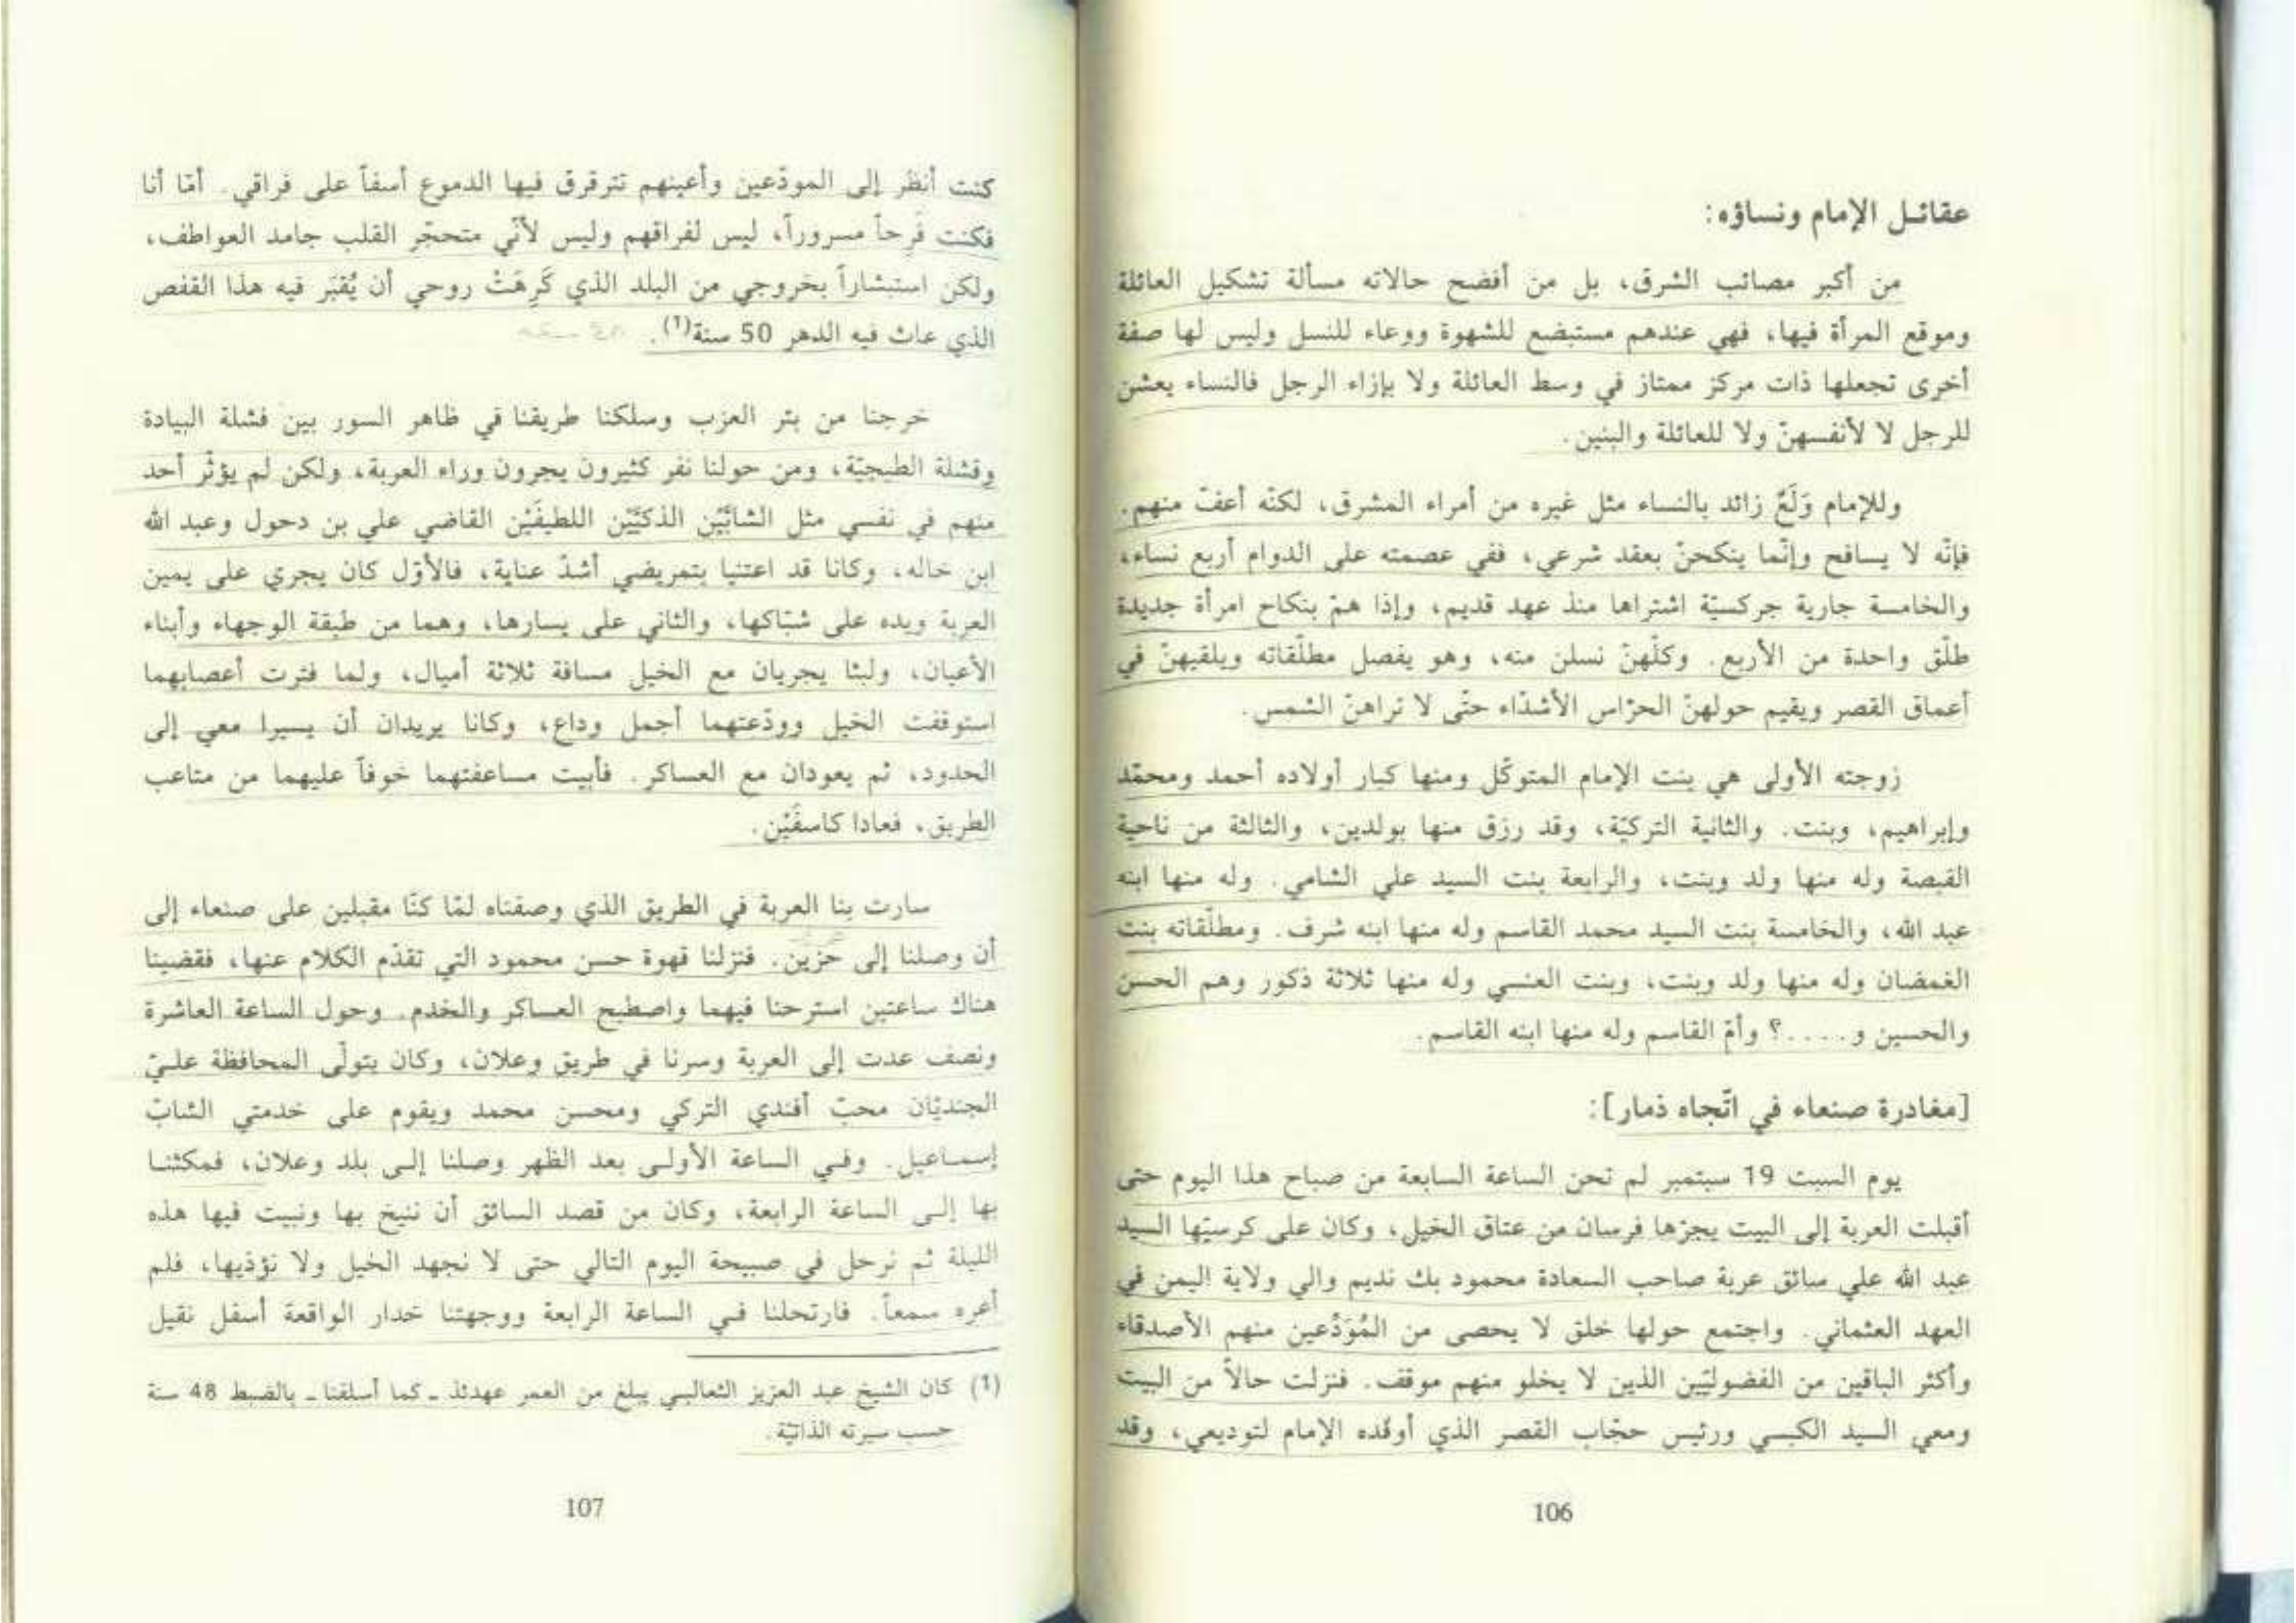 عقائل الإمام ونساؤه:
من أكبر مصائب الشرق، بل من أفضح حالاته مسألة تشكيل العائلة
وموقع المرأة فيها، فهي عندهم مستبضع للشهوة ووعاء للنسل وليس لها صفة
أخرى تجعلها ذات مركز ممتاز في وسط العائلة ولا بإزاء الرجل فالنساء يعشن
للرجل لا لأنفسهنّ ولا للعائلة والبنين.
وللإمام وَلَعٌ زائد بالنساء مثل غيره من أمراء المشرق، لكنّه أعفّ منهم.
فإنّه لا يسافح وإنّما ينكحنّ بعقد شرعي، ففي عصمته على الدوام أربع نساء،
والخامسة جارية جركسيّة اشتراها منذ عهد قديم، وإذا همّ بنكاح امرأة جديدة
طلّق واحدة من الأربع. وكلّهنّ نسلن منه، وهو يفصل مطلّقاته ويلقيهنّ في
أعماق القصر ويقيم حولهنّ الحرّاس الأشدّاء حتّى لا تراهنّ الشمس.
زوجته الأولى هي بنت الإمام المتوكّل ومنها كبار أولاده أحمد ومحمّد
وإبراهيم، وبنت. والثانية التركيّة، وقد رزق منها بولدين، والثالثة من ناحية
القبصة وله منها ولد وبنت، والرابعة بنت السيد علي الشامي. وله منها ابنه
عبد الله، والخامسة بنت السيد محمد القاسم وله منها ابنه شرف. ومطلّقاته بنت
الغمضان وله منها ولد وبنت، وبنت العنسي وله منها ثلاثة ذكور وهم الحسن
والحسين و....؟ وأمّ القاسم وله منها ابنه القاسم.
[مغادرة صنعاء في اتّجاه ذمار]:
يوم السبت 19 سبتمبر لم تحن الساعة السابعة من صباح هذا اليوم حتى
أقبلت العربة إلى البيت يجرّها فرسان من عتاق الخيل، وكان على كرسيّها السيد
عبد الله علي سائق عربة صاحب السعادة محمود بك نديم والي ولاية اليمن في
العهد العثماني. واجتمع حولها خلق لا يحصى من المُوَدِّعين منهم الأصدقاء
وأكثر الباقين من الفضوليّين الذين لا يخلو منهم موقف. فنزلت حالاً من البيت
ومعي السيد الكبسي ورئيس حجّاب القصر الذي أوفده الإمام لتوديعي، وقد
106
كنت أنظر إلى المودّعين وأعينهم تترقرق فيها الدموع أسفاً على فراقي. أمّا أنا
فكنت فَرِحاً مسروراً، ليس لفراقهم وليس لأنّي متحجّر القلب جامد العواطف،
ولكن استبشاراً بخروجي من البلد الذي كَرِهَتْ روحي أن يُقبَر فيه هذا القفص
الذي عاث فيه الدهر 50 سنة(1).
خرجنا من بئر العزب وسلكنا طريقنا في ظاهر السور بين قشلة البيادة
وقشلة الطبجيّة، ومن حولنا نفر كثيرون يجرون وراء العربة، ولكن لم يؤثّر أحد
منهم في نفسي مثل الشابَّيْن الذكيَّيْن اللطيفَيْن القاضي علي بن دحول وعبد الله
ابن خاله، وكانا قد اعتنيا بتمريضي أشدّ عناية، فالأوّل كان يجري على يمين
العربة ويده على شبّاكها، والثاني على يسارها، وهما من طبقة الوجهاء وأبناء
الأعيان، ولبثا يجريان مع الخيل مسافة ثلاثة أميال، ولما فترت أعصابهما
استوقفت الخيل وودّعتهما أجمل وداع، وكانا يريدان أن يسيرا معي إلى
الحدود، ثم يعودان مع العساكر. فأبيت مساعفتهما خوفاً عليهما من متاعب
الطريق، فعادا كاسفَيْن.
سارت بنا العربة في الطريق الذي وصفناه لمّا كنّا مقبلين على صنعاء إلى
أن وصلنا إلى حَزْيَن. فنزلنا قهوة حسن محمود التي تقدّم الكلام عنها، فقضينا
هناك ساعتين استرحنا فيهما واصطبح العساكر والخدم. وحول الساعة العاشرة
ونصف عدت إلى العربة وسرنا في طريق وعلان، وكان يتولّى المحافظة عليّ
الجنديّان محبّ أفندي التركي ومحسن محمد ويقوم على خدمتي الشابّ
إسماعيل. وفي الساعة الأولى بعد الظهر وصلنا إلى بلد وعلان، فمكثنا
بها إلى الساعة الرابعة، وكان من قصد السائق أن ننيخ بها ونبيت فيها هذه
الليلة ثم نرحل في صبيحة اليوم التالي حتى لا نجهد الخيل ولا نؤذيها، فلم
أعره سمعاً. فارتحلنا في الساعة الرابعة ووجهتنا خدار الواقعة أسفل نقيل
(1) كان الشيخ عبد العزيز الثعالبي يبلغ من العمر عهدئذ ـ كما أسلفنا ـ بالضبط 48 سنة
حسب سيرته الذاتيّة.
107